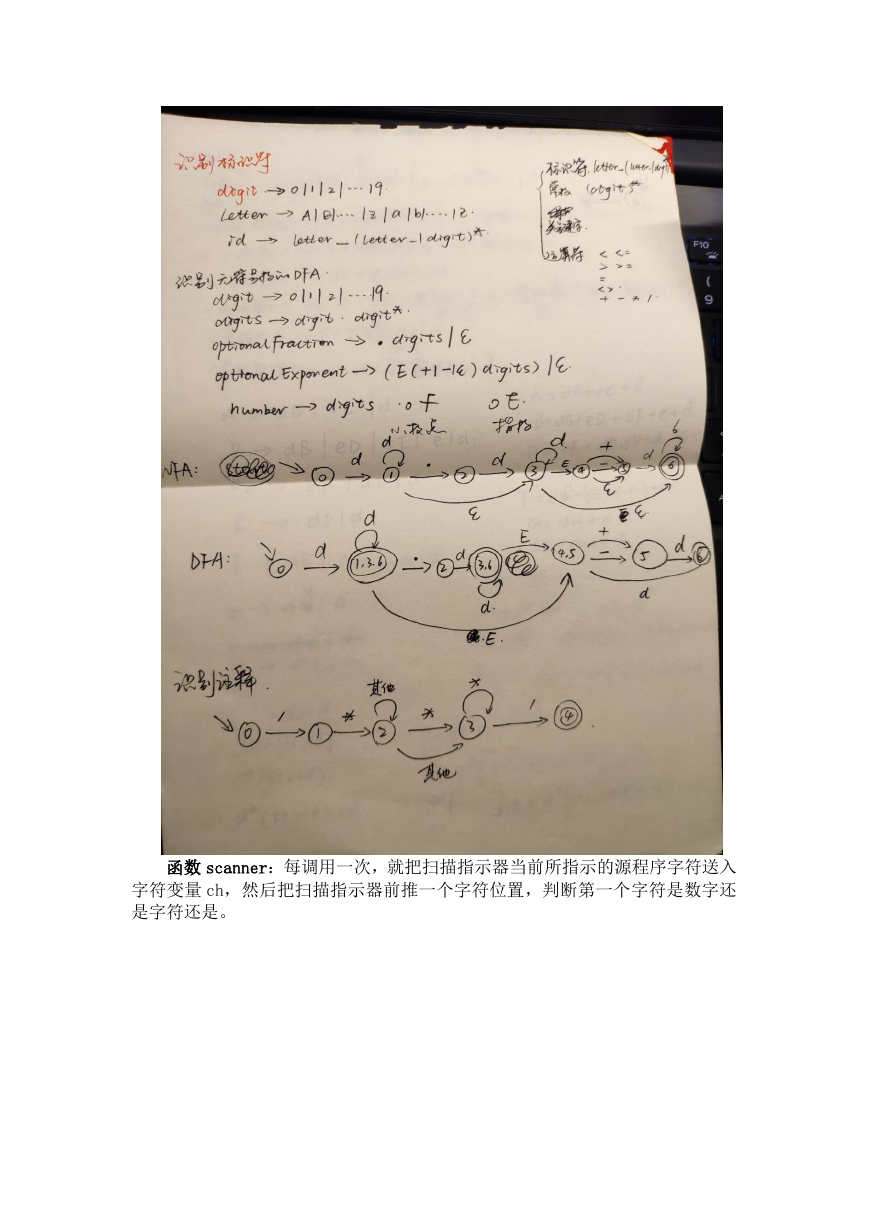 识别标识符
digit → 0|1|2|···|9.
letter → A|B|···|z|a|b|····|z.
id → letter_(letter_|digit)*.
标识符. letter_(letter_|digit)*
常数 (digit)*
关键字.
运算符 < <=
> >=
=
<>.
+ - * /.
识别无符号数的DFA.
digit → 0|1|2|···|9.
digits → digit · digit*.
optional Fraction → . digits|ε
optional Exponent → (E(+|-|ε) digits)|ε.
number → digits ·oF oE.
小数点 指数
NFA: 0 d 1 d · 2 d 3 d E 4 + - ε 5 d 6 6
ε ε
DFA: 0 d 1.3.6 d · 2 d 3.6 E 4,5 + - 5 d 6
d. d
E.
识别注释.
0 / 1 * 2 其他 * 3 * / 4
其他
F10
(
9
函数 scanner：每调用一次，就把扫描指示器当前所指示的源程序字符送入
字符变量 ch，然后把扫描指示器前推一个字符位置，判断第一个字符是数字还
是字符还是。